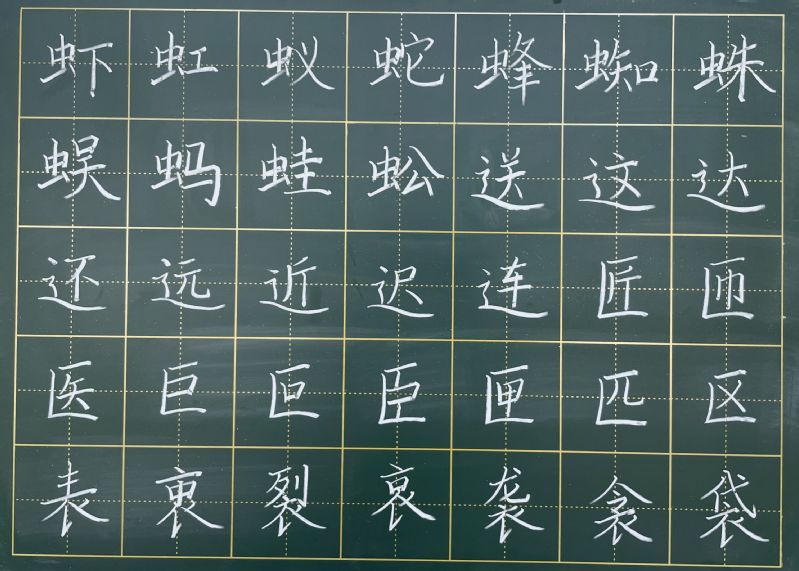 虾虹蚁蛇蜂蜘蛛
蜈蚂蛙蚣送这达
还远近迟连匠匝
医巨叵臣匣匹区
表衷裂哀袭衾袋